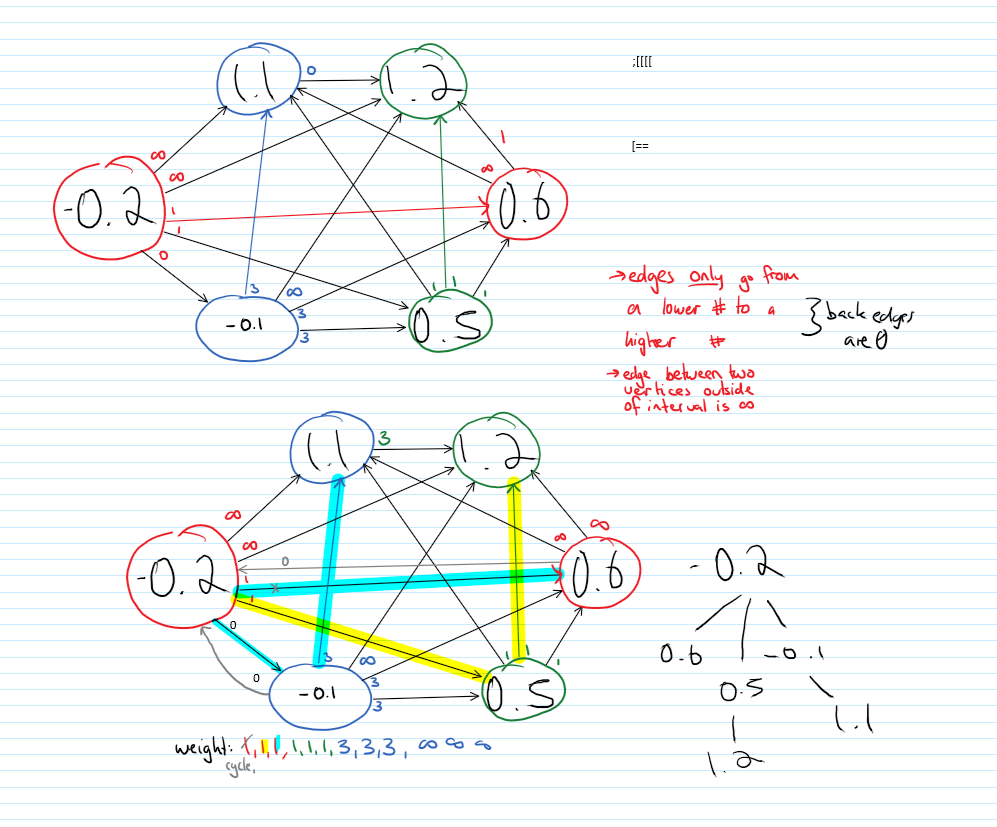 ;[[[[
1.1 0 1.2
[==
1
∞
∞
∞
-0.2 1 0.6
1
0
3 ∞ 1 1 1
-0.1 3 0.5
3
→edges only go from
a lower # to a
higher #
}back edges
are 0
→edge between two
vertices outside
of interval is ∞
1.1 3 1.2
∞
∞
∞
∞
0
-0.2 1 x 0.6
1
0
0
3 ∞ 1 1 1
-0.1 3 0.5
3
-0.2
0.6 -0.1
0.5
1.1
1.2
weight: 1, 1, 1, 1, 1, 1, 3, 3, 3, ∞ ∞ ∞
cycle,